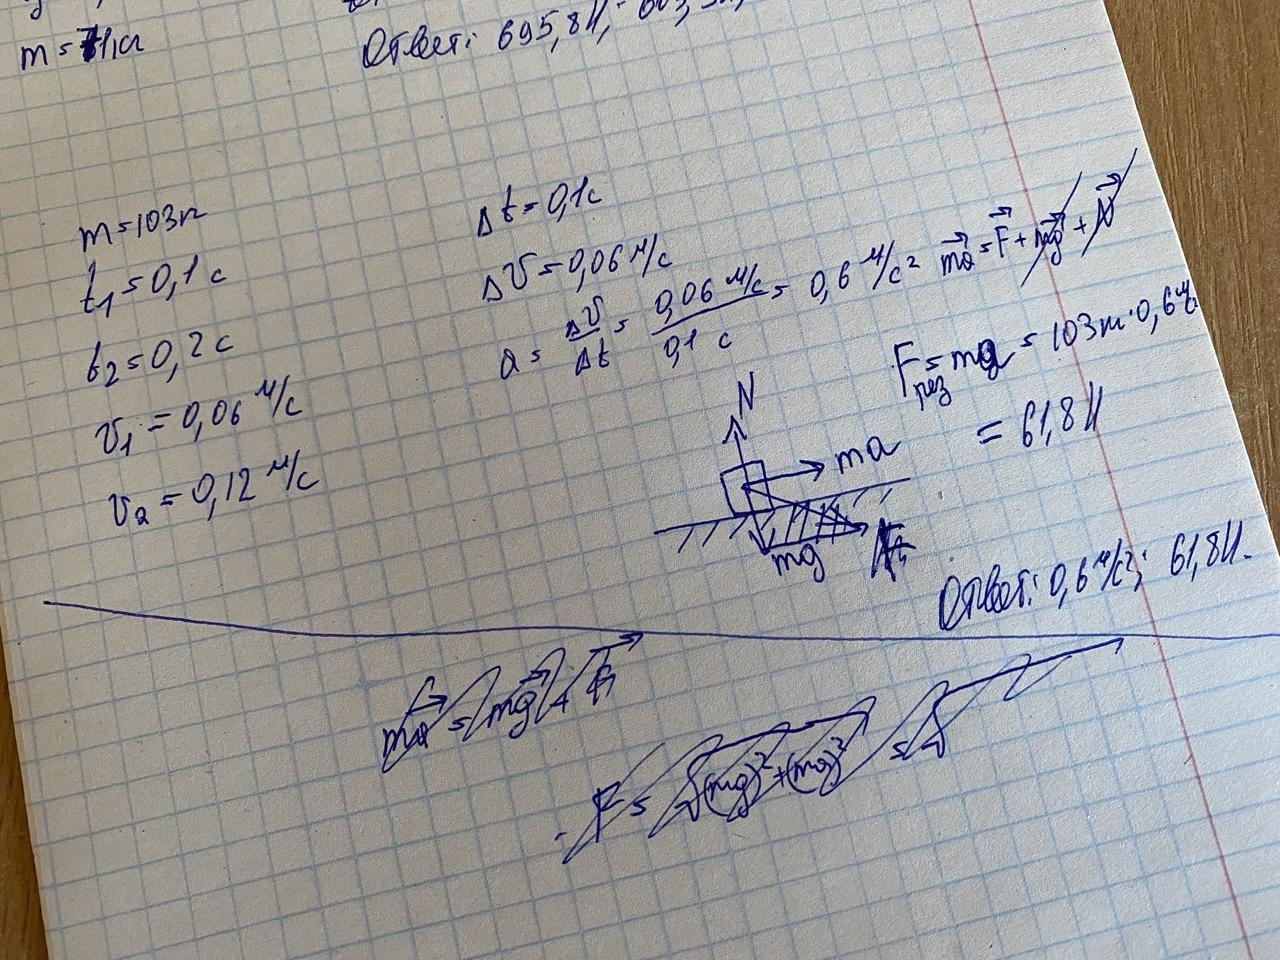 m = 71,cл
Ответ: 695,8Н;
m = 103 г
t₁ = 0,1 с
t₂ = 0,2 с
v₁ = 0,06 м/с
v₂ = 0,12 м/с
Δt = 0,1 с
Δv = 0,06 м/с
a = Δv/Δt = 0,06 м/с / 0,1 с = 0,6 м/с²
ma = F + mg + N
Fрез = ma = 103 m · 0,6 м/с²
= 61,8 Н
N
ma
mg
Ответ: 0,6 м/с²; 61,8 Н.
ma = mg +
F = √(mg)² + (mg)² = √